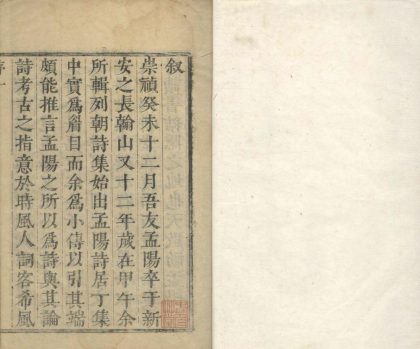 叙
崇禎癸未十二月吾友孟陽卒于新
安之長翰山又十二年歲在甲午余
所輯列朝詩集始出孟陽詩居丁集
中實為眉目而余為小傳以引其端
頗能推言孟陽之所以為詩與其論
詩考古之指意於時風人詞客希風
序一